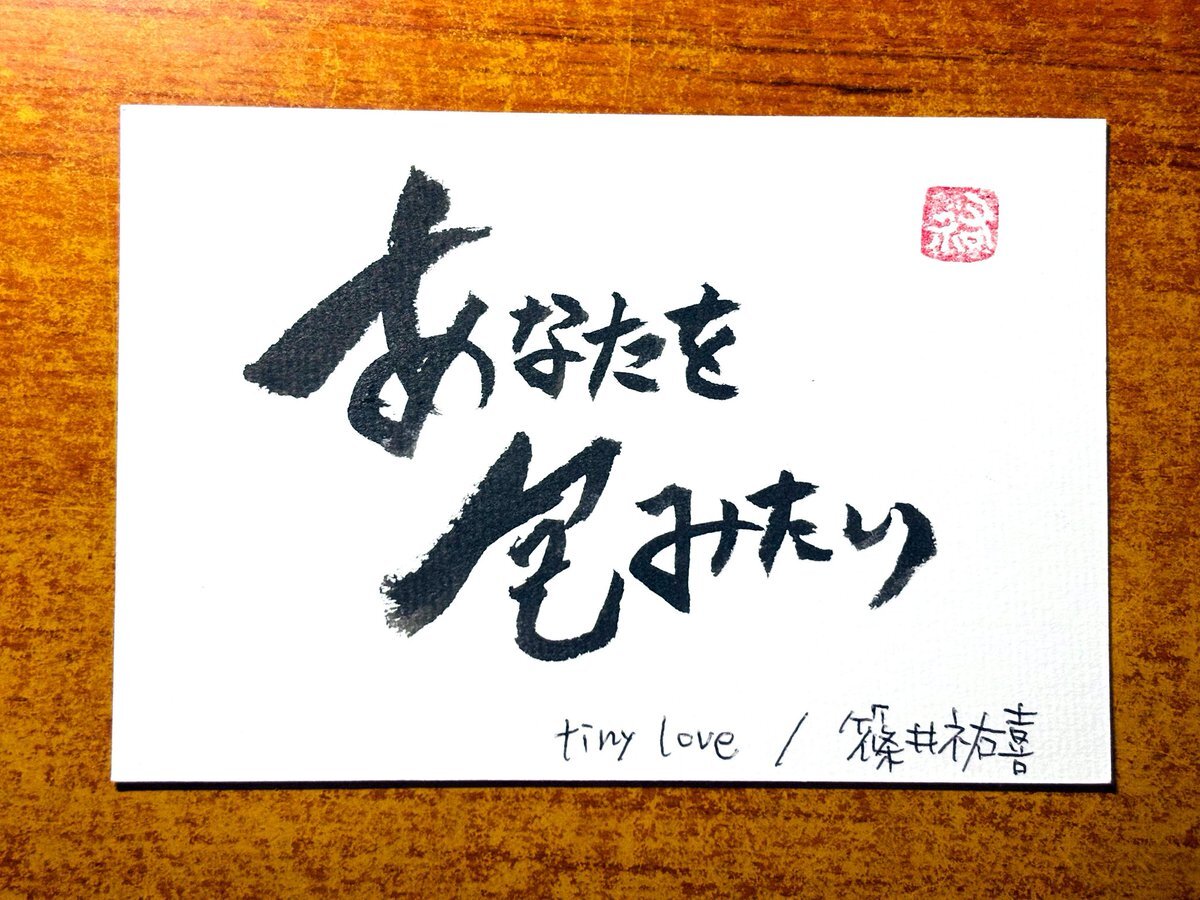 あなたを
包みたい
tiny love / 篠井祐喜